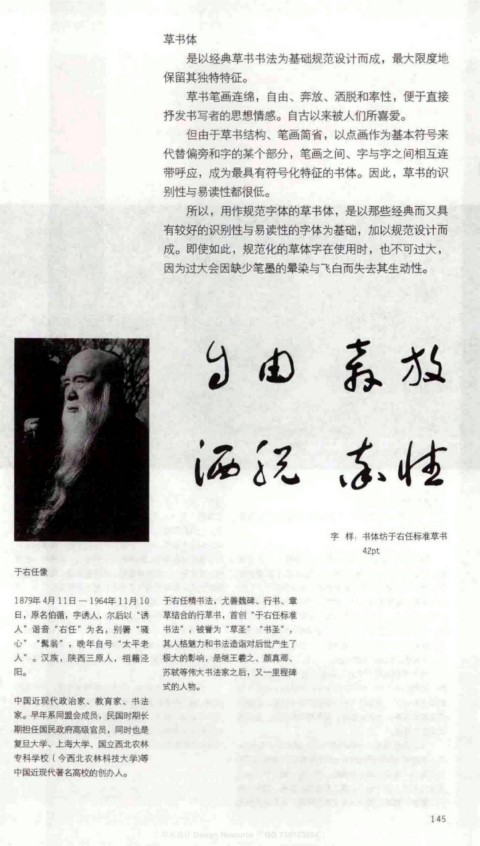 草书体
是以经典草书书法为基础规范设计而成，最大限度地
保留其独特特征。
草书笔画连绵，自由、奔放、洒脱和率性，便于直接
抒发书写者的思想情感。自古以来被人们所喜爱。
但由于草书结构、笔画简省，以点画作为基本符号来
代替偏旁和字的某个部分，笔画之间、字与字之间相互连
带呼应，成为最具有符号化特征的书体。因此，草书的识
别性与易读性都很低。
所以，用作规范字体的草书体，是以那些经典而又具
有较好的识别性与易读性的字体为基础，加以规范设计而
成。即使如此，规范化的草体字在使用时，也不可过大，
因为过大会因缺少笔墨的晕染与飞白而失去其生动性。
自由 奔放
洒脱 率性
字 样：书体纺于右任标准草书
42pt
于右任像
1879年 4月 11日 — 1964年 11月 10
日，原名伯循，字诱人，尔后以“诱
人”谐音“右任”为名，别署“骚
心”“髯翁”，晚年自号“太平老
人”。汉族，陕西三原人，祖籍泾
阳。
中国近现代政治家、教育家、书法
家。早年系同盟会成员，民国时期长
期担任国民政府高级官员，同时也是
复旦大学、上海大学、国立西北农林
专科学校（今西北农林科技大学)等
中国近现代著名高校的创办人。
于右任精书法，尤善魏碑、行书、章
草结合的行草书，首创“于右任标准
书法”，被誉为“草圣”“书圣”，
其人格魅力和书法造诣对后世产生了
极大的影响，是继王羲之、颜真卿、
苏轼等伟大书法家之后，又一里程碑
式的人物。
145